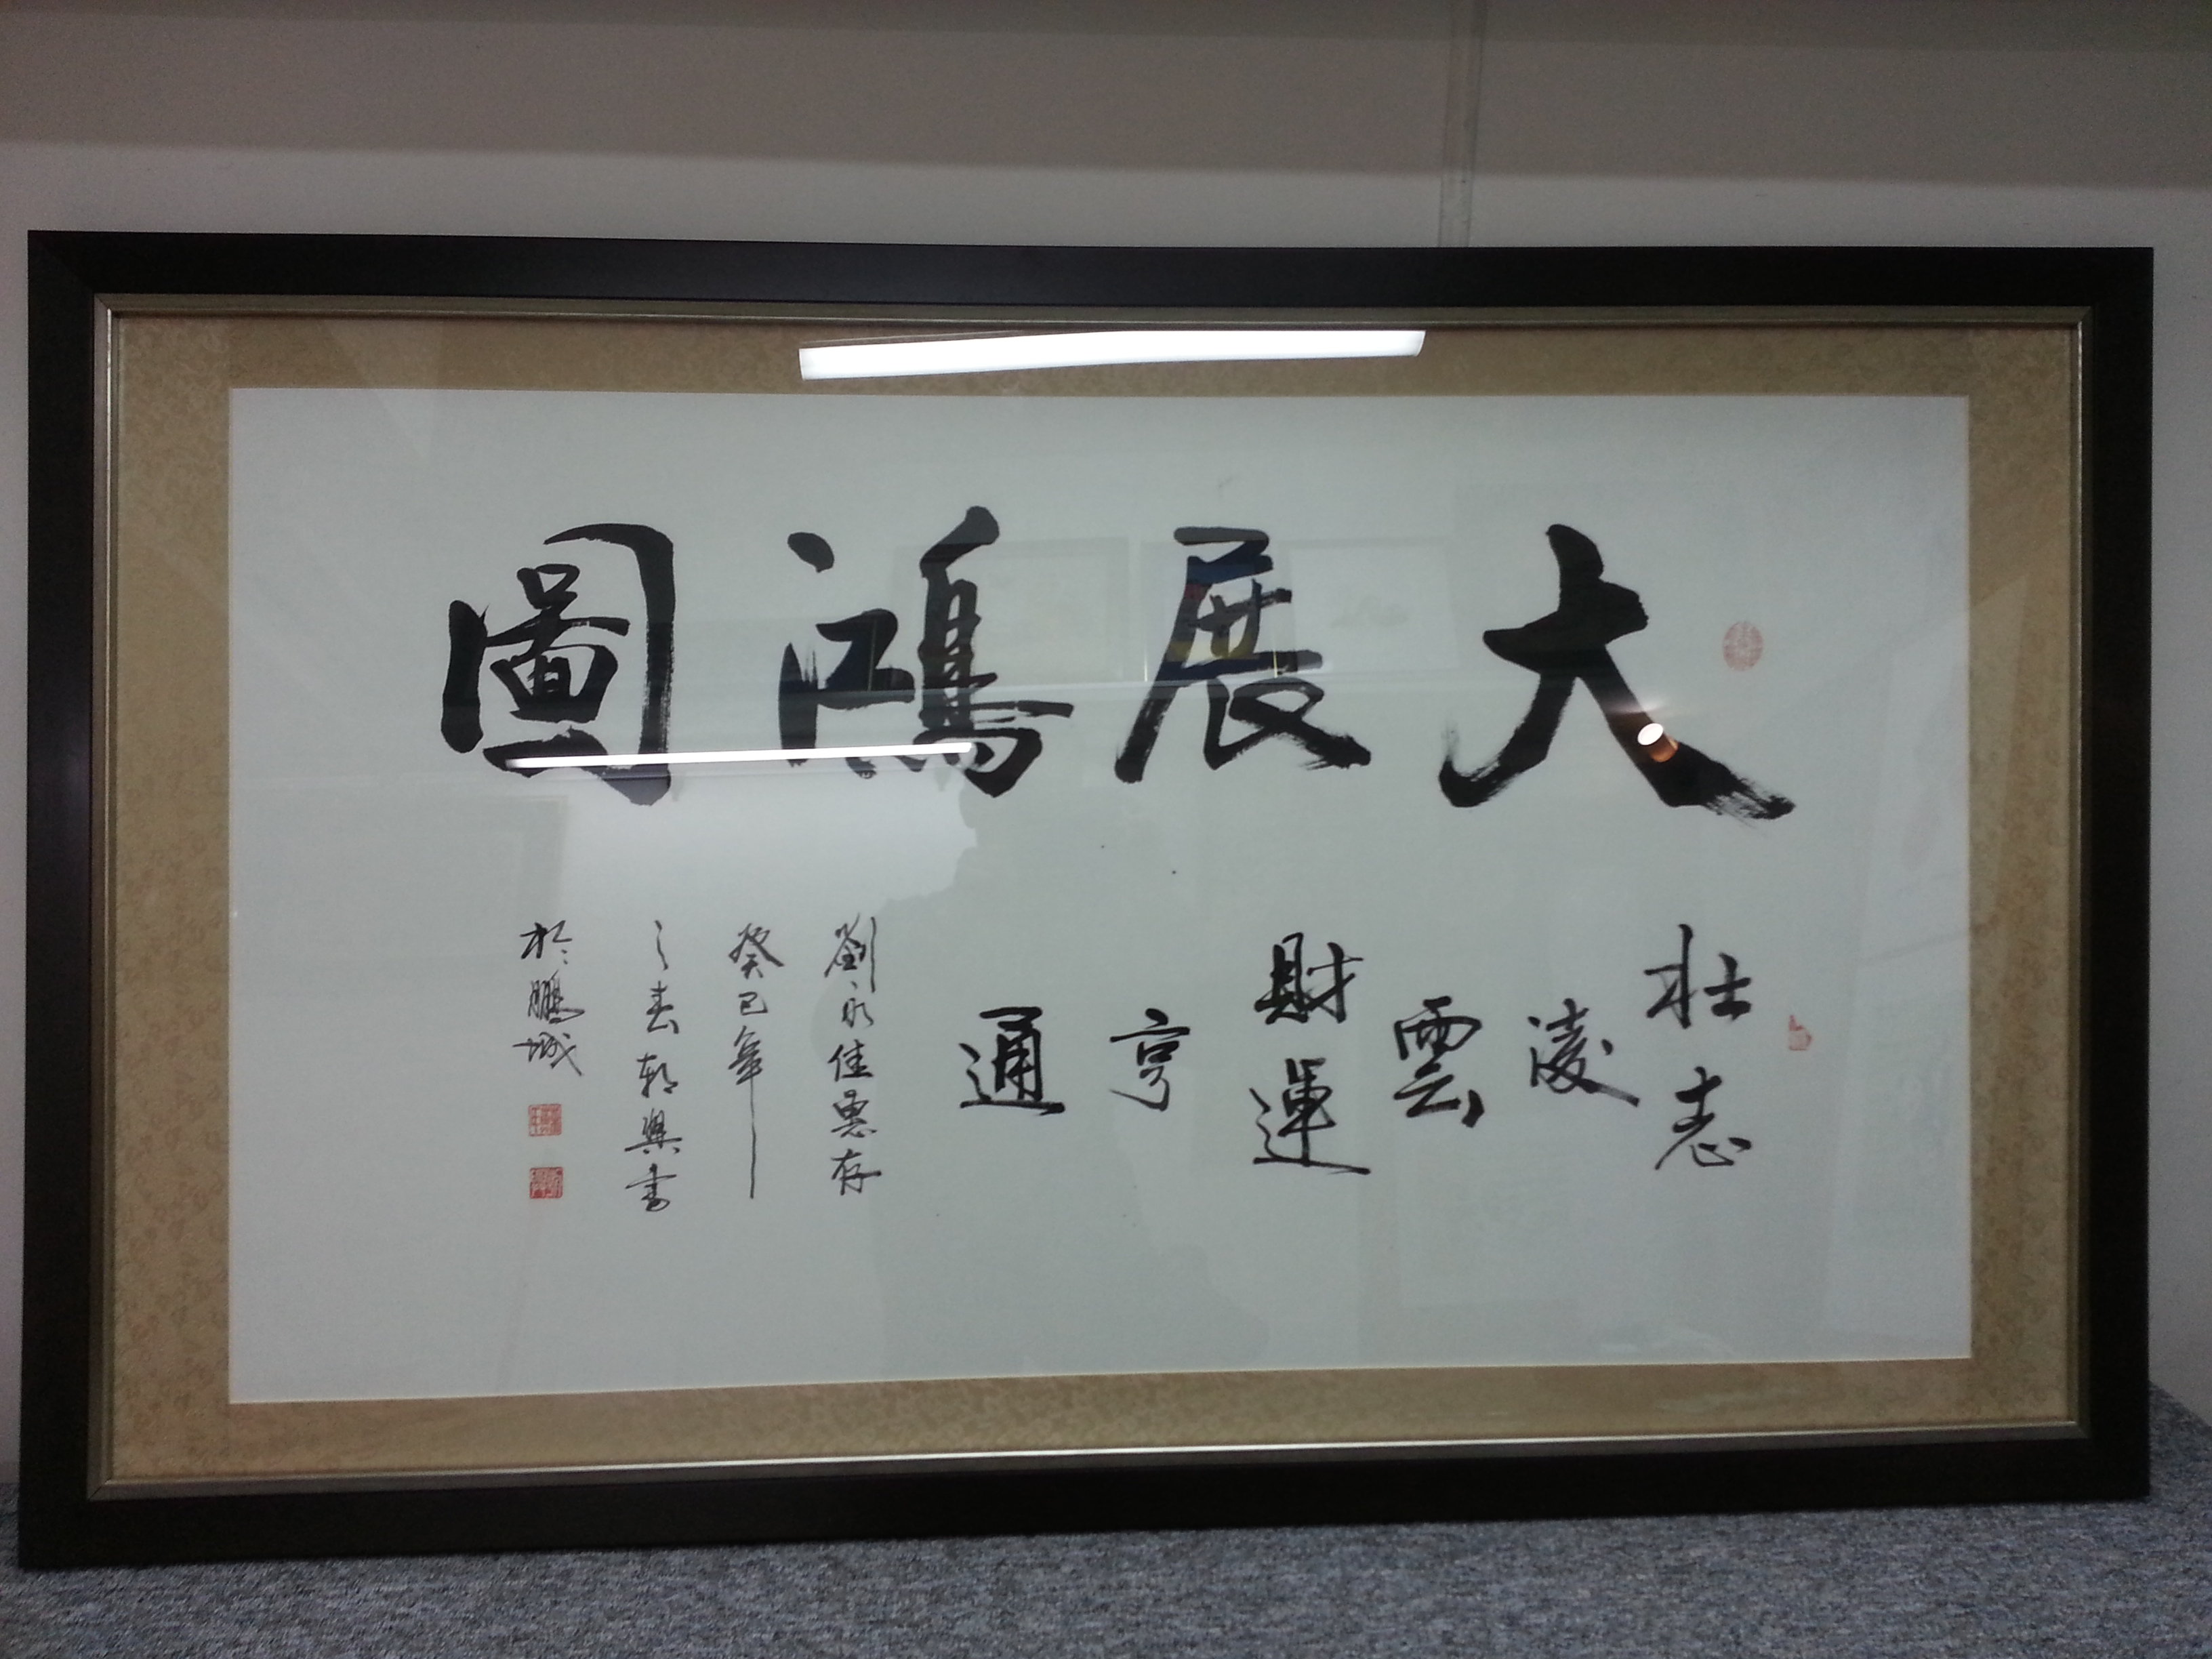 大展鴻圖
壯志凌雲財運亨通
劉永佳惠存
癸巳年
之春朝興書
於鵬城